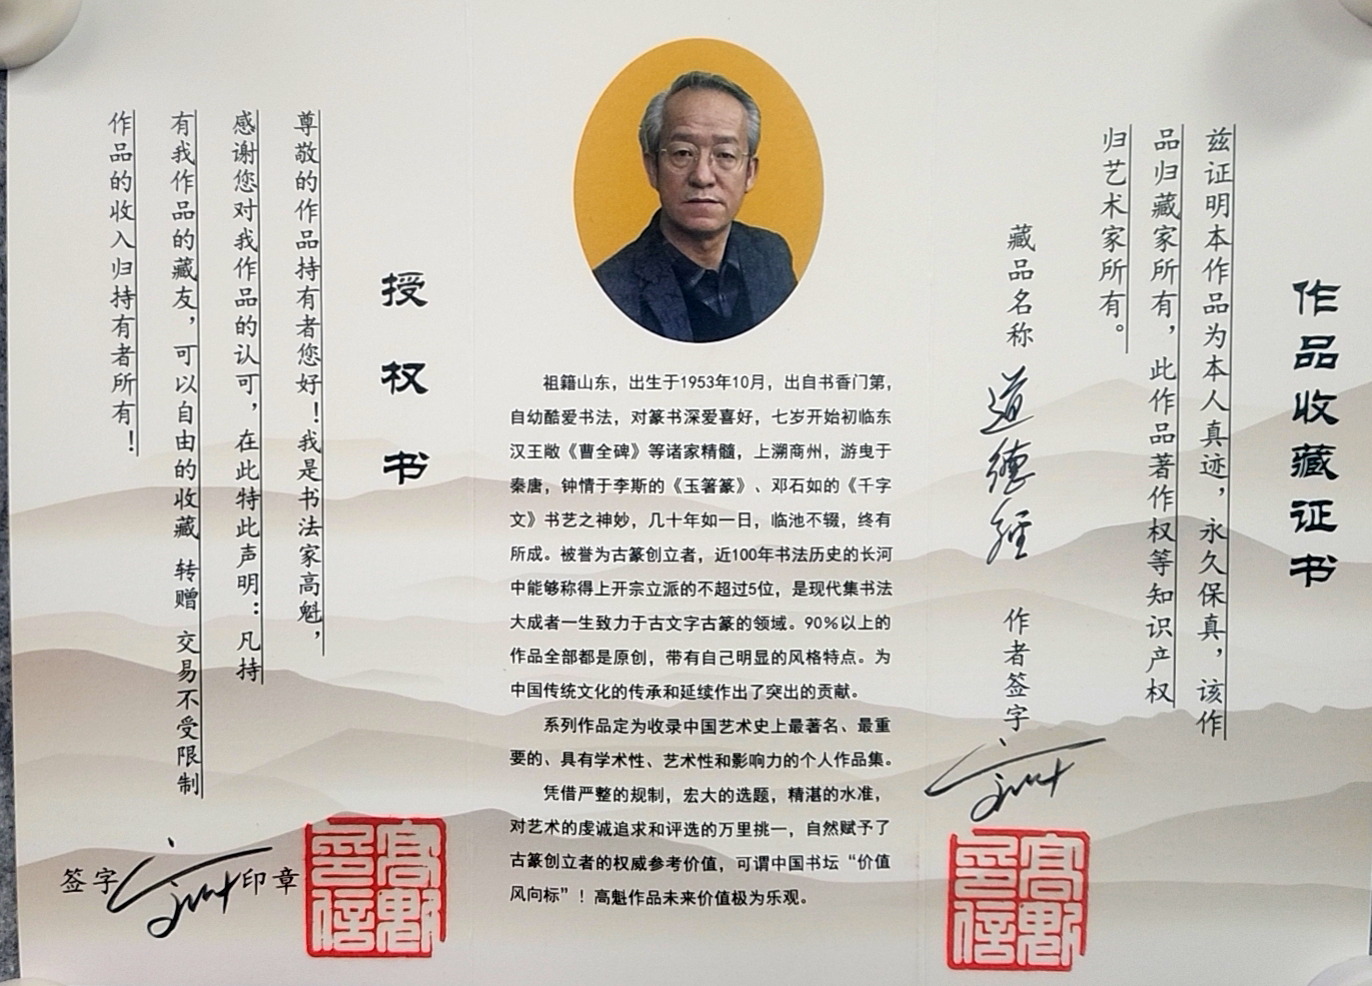 作品收藏证书
兹证明本作品为本人真迹，永久保真，该作
品归藏家所有，此作品著作权等知识产权
归艺术家所有。
藏品名称 道德经 作者签字
祖籍山东，出生于1953年10月，出自书香门第，
自幼酷爱书法，对篆书深爱喜好，七岁开始初临东
汉王敞《曹全碑》等诸家精髓，上溯商州，游曳于
秦唐，钟情于李斯的《玉箸篆》、邓石如的《千字
文》书艺之神妙，几十年如一日，临池不辍，终有
所成。被誉为古篆创立者，近100年书法历史的长河
中能够称得上开宗立派的不超过5位，是现代集书法
大成者一生致力于古文字古篆的领域。90%以上的
作品全部都是原创，带有自己明显的风格特点。为
中国传统文化的传承和延续作出了突出的贡献。
系列作品定为收录中国艺术史上最著名、最重
要的、具有学术性、艺术性和影响力的个人作品集。
凭借严整的规制，宏大的选题，精湛的水准，
对艺术的虔诚追求和评选的万里挑一，自然赋予了
古篆创立者的权威参考价值，可谓中国书坛“价值
风向标”！高魁作品未来价值极为乐观。
授权书
尊敬的作品持有者您好！我是书法家高魁，
感谢您对我作品的认可，在此特此声明：凡持
有我作品的藏友，可以自由的收藏 转赠 交易不受限制
作品的收入归持有者所有！
签字 印章
高魁